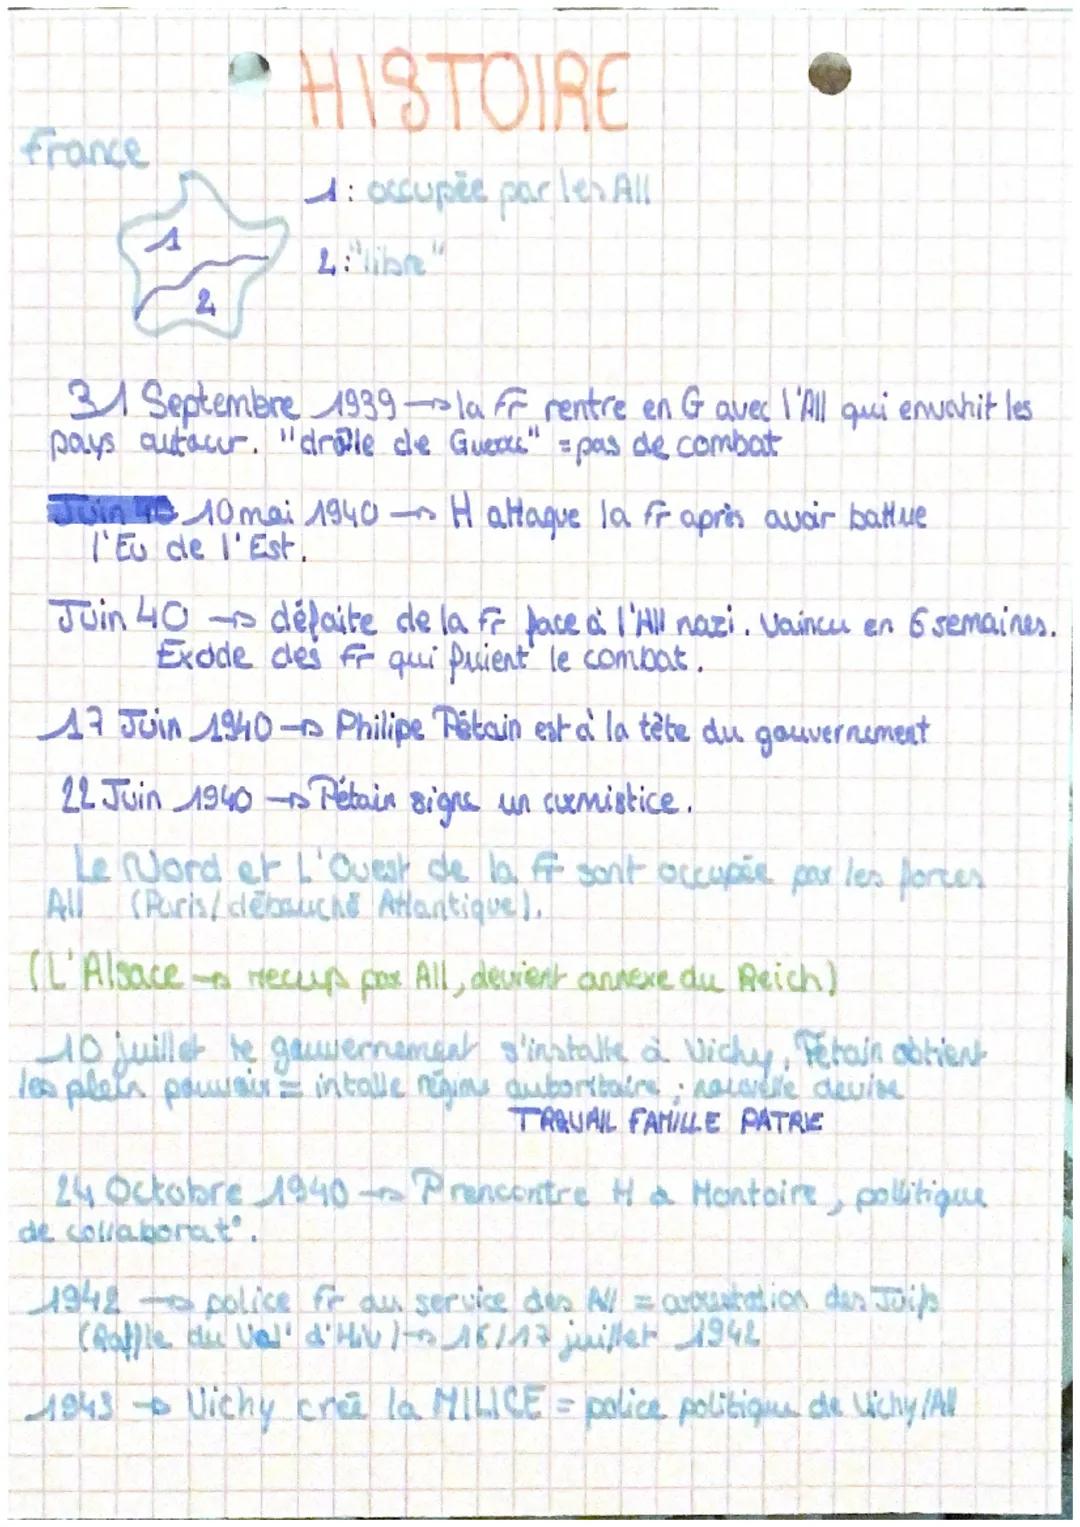 HISTOIRE
France
1 : occupée par les All
2 : "libre"
1
2
31 Septembre 1939 → la Fr rentre en G avec l'All qui envahit les
pays autour. "drôlle de Guerre" = pas de combat
Juin 40 10 mai 1940 → H attaque la Fr après avoir battue
l'Eu de l'Est.
Juin 40 → défaite de la Fr face à l'All nazi. Vaincu en 6 semaines.
Exode des Fr qui fuient le combat.
17 Juin 1940 → Philipe Pétain est à la tête du gouvernement
22 Juin 1940 → Pétain signe un armistice.
Le Nord et L'Ouest de la Fr sont occupée par les forces
All (Paris/débauché Atlantique).
(L'Alsace → recup par All, devient annexe du Reich)
10 juillet le gouvernement s'installe à Vichy, Pétain obtient
les plein pouvoir = intalle régime autoritaire ; nouvelle devise
TRAVAIL FAMILLE PATRIE
24 Octobre 1940 → P rencontre H à Montoire, pollitique
de collaborat°.
1942 → police Fr au service des All = arrestation des Juifs
(Raffle du Vel' d'Hiv) → 16/17 juillet 1942
1943 → Vichy créé la MILICE = police politique de Vichy/All